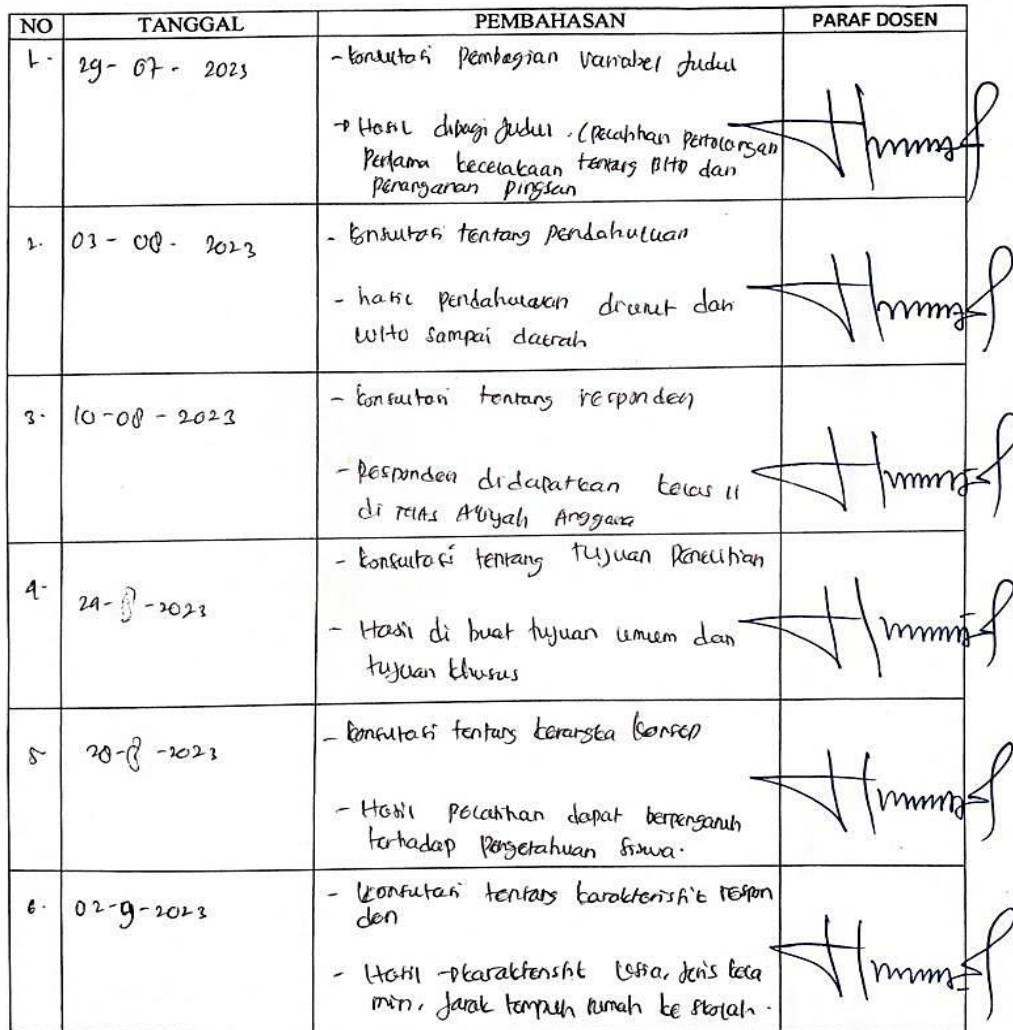 NO TANGGAL PEMBAHASAN PARAF DOSEN
1. 29-07-2023 - Konsultasi Pembagian Variabel Judul
→ Hasil dibagi Judul. (pelatihan pertolongan
Pertama kecelakaan tentang BHD dan
Penanganan pingsan
2. 03-08-2023 - Konsultasi tentang pendahuluan
- hasil pendahuluan diurut dari
WHO sampai daerah
3. 10-08-2023 - Konsultasi tentang responden
- Responden didapatkan kelas 11
di MAS Aliyah Anggana
4. 24-8-2023 - Konsultasi tentang tujuan Penelitian
- Hasil di buat tujuan umum dan
tujuan khusus
5 -8-2023 - Konsultasi tentang kerangka konsep
- Hasil pelatihan dapat berpengaruh
terhadap Pengetahuan Siswa.
6. 02-9-2023 - Konsultasi tentang karakteristik respon
den
- Hasil → karakteristik Usia, Jenis kela
min, Jarak tempuh rumah ke sekolah.